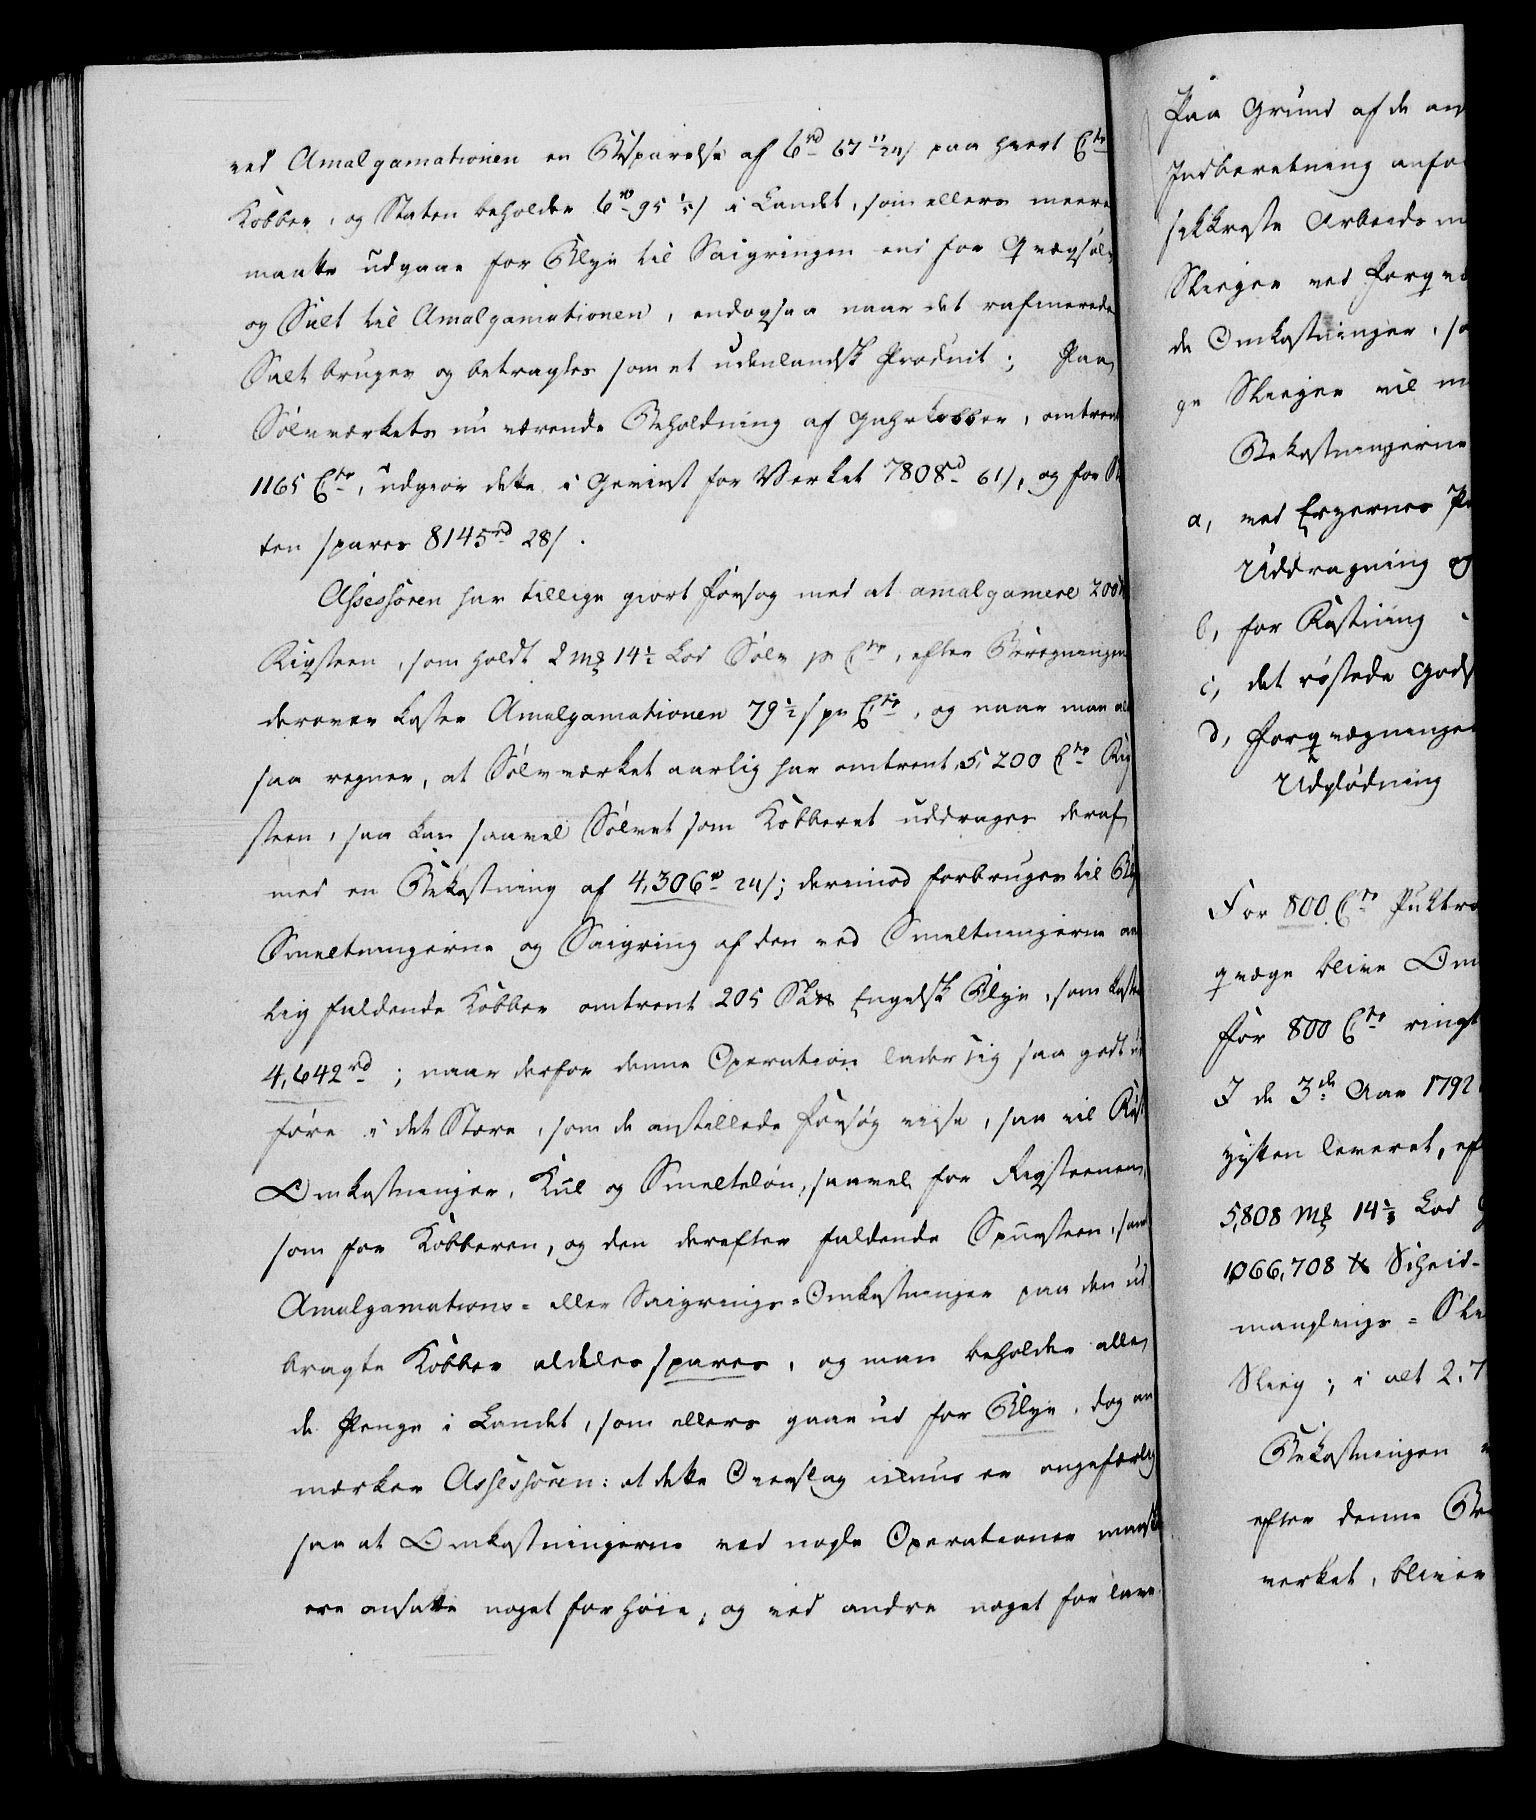 ved Amalgamationen en Besparelse af 6 rd 67 11/24 s paa hvert Ctnr
Kobber, og Staten beholder 6 rd 95 1/5 s i Landet, som ellers meere
maatte udgaae for Blye til Saigringen end for Qvægsølv
og Salt til Amalgamationen, endogsaa naar det rafinerede
Salt bruges og betragtes som et udenlandsk Product; Paa
Sølvværkets nu værende Beholdning af Gahrkobber, omtrent
1165 Ctnr, udgiør dette i Gevinst for Verket 7808 rd 61 s, og for Sta
ten spares 8145 rd 28 s.
Assessoren har tillige giort Forsøg med at amalgamere 200
Rigsteen, som holdt 2 mk 14 1/2 Lod Sølv pr Ctnr, efter Beregningen
derover koster Amalgamationen 79 1/2 s pr Ctnr, og naar man alt
saa regner, at Sølvværket aarlig har omtrent 5,200 Ctnr Rig
steen, saa kan saavel Sølvet som Kobberet uddrages deraf
med en Bekostning af 4,306 rd 24 s; derimod forbruges til Blye
Smeltningerne og Saigring af den ved Smeltningerne aar
lig faldende Kobber omtrent 205 Engelsk Blye, som koster
4,642 rd; naar derfor denne Operation lader sig saa godt ud
føre i det Store, som de anstillede Forsøg viise, saa vil
Omkostninger, Kul og Smelteløn, saavel for Rigsteenen
som for Kobberen, og den derefter faldende Spursteen, samt
Amalgamations= eller Saigrings=Omkostninger paa den ud
bragte Kobber aldeles spares, og man beholder alle
de Penge i Landet, som ellers gaae ud for Blye, dog an
mærker Assessoren: at dette Overslag er ongefærlig
saa at Omkostningerne ved nogle Operationer maaskee
ere ansatte noget for høie, og ved andre noget for lave.
Paa Grund af de an
Indberetning anfø
sikkreste Arbeids m
Sleeger ved Forqvæ
de Omkostninger, so
ge Sleeger vil m
Bekostningerne
a, ved Erzernes
Uddragning og
b, for Røstning
c, det røstede Gods
d, Forqvægninge
Udglødning
For 800 Ctnr
qvæge blive Om
For 800 Ctnr ringe
I de 3de Aar 1792
leveret, ef
5,808 mk 14 2/3 Lod
1,066,708 ℔ Scheid-
manglings = Sle
Sleeg; i alt 2,7
Bekostningen
efter denne Be
verket, bliver